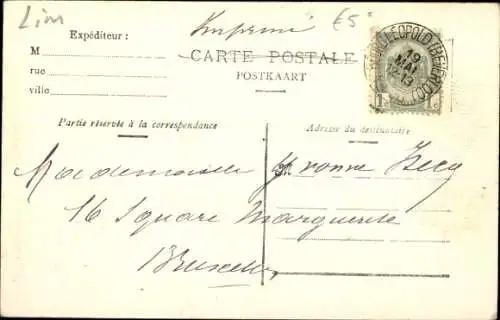 Lim
Imprimé
€5
Expéditeur :
M
rue
ville
CARTE POSTALE
POSTKAART
LÉOPOLD (BEVERLOO)
19
MAI
12-13
1c 1c
Partie réservée à la correspondance
Adresse du destinataire
Mademoiselle Yvonne
16 Square Marguerite
Bruxelles